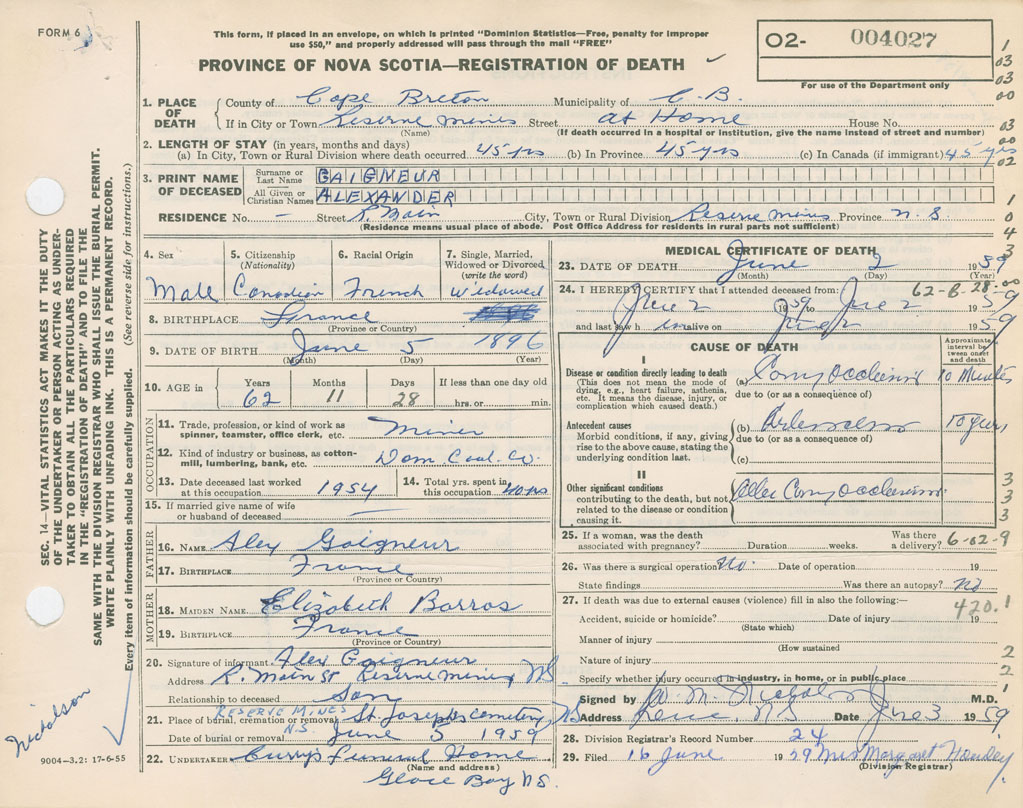 FORM 6
This form, if placed in an envelope, on which is printed "Dominion Statistics—Free, penalty for improper
use $50," and properly addressed will pass through the mail "FREE"
O2- 004027
For use of the Department only
PROVINCE OF NOVA SCOTIA—REGISTRATION OF DEATH
1. PLACE OF DEATH County of Cape Breton Municipality of C.B.
If in City or Town Reserve Mines Street at Home House No.
(Name) (If death occurred in a hospital or institution, give the name instead of street and number)
2. LENGTH OF STAY (in years, months and days)
(a) In City, Town or Rural Division where death occurred 45 yrs (b) In Province 45 yrs (c) In Canada (if immigrant) 45 yrs
3. PRINT NAME OF DECEASED Surname or Last Name GAIGNEUR
All Given or Christian Names ALEXANDER
RESIDENCE No. - Street R. Main City, Town or Rural Division Reserve Mines Province N.S.
(Residence means usual place of abode. Post Office Address for residents in rural parts not sufficient)
4. Sex Male
5. Citizenship (Nationality) Canadian
6. Racial Origin French
7. Single, Married, Widowed or Divorced (write the word) Widowed
8. BIRTHPLACE France
(Province or Country)
9. DATE OF BIRTH June 5 1896
(Month) (Day) (Year)
10. AGE in Years 62 Months 11 Days 28 If less than one day old hrs. or min.
OCCUPATION
11. Trade, profession, or kind of work as spinner, teamster, office clerk, etc. Miner
12. Kind of industry or business, as cotton-mill, lumbering, bank, etc. Dom. Coal. Co.
13. Date deceased last worked at this occupation 1954 14. Total yrs. spent in this occupation 40 yrs
15. If married give name of wife or husband of deceased
FATHER
16. NAME Alex Gaigneur
17. BIRTHPLACE France
(Province or Country)
MOTHER
18. MAIDEN NAME Elizabeth Barros
19. BIRTHPLACE France
(Province or Country)
20. Signature of informant Alex Gaigneur
Address R. Main St Reserve Mines NS
Relationship to deceased Son
21. Place of burial, cremation or removal RESERVE MINES N.S. St. Josephs Cemetery NS
Date of burial or removal June 5 1959
22. UNDERTAKER Curry's Funeral Home
(Name and address)
Glace Bay N.S.
MEDICAL CERTIFICATE OF DEATH
23. DATE OF DEATH June 2 1959
(Month) (Day) (Year)
24. I HEREBY CERTIFY that I attended deceased from: 62-B-28-00
June 2 1959 to June 2 1959
and last saw him alive on June 2 1959
CAUSE OF DEATH
Approximate interval between onset and death
I
Disease or condition directly leading to death
(This does not mean the mode of dying, e.g., heart failure, asthenia, etc. It means the disease, injury, or complication which caused death.)
(a) Corny Occlusion 10 Minutes
due to (or as a consequence of)
Antecedent causes
Morbid conditions, if any, giving rise to the above cause, stating the underlying condition last.
(b) 10 years
due to (or as a consequence of)
(c)
II
Other significant conditions
contributing to the death, but not related to the disease or condition causing it.
Corny Occlusion
25. If a woman, was the death associated with pregnancy? Duration weeks. Was there a delivery? 6-02-9
26. Was there a surgical operation No. Date of operation 19
State findings Was there an autopsy? No
27. If death was due to external causes (violence) fill in also the following:—
420.1
Accident, suicide or homicide? Date of injury 19
(State which)
Manner of injury
(How sustained
Nature of injury
Specify whether injury occurred in industry, in home, or in public place
Signed by M. Nicholson M.D.
Address NS Date June 3 1959
28. Division Registrar's Record Number 24
29. Filed 16 June 1959 Mrs Margaret
(Division Registrar)
SEC. 14—VITAL STATISTICS ACT MAKES IT THE DUTY
OF THE UNDERTAKER OR PERSON ACTING AS UNDER-
TAKER TO OBTAIN ALL THE PARTICULARS REQUIRED
IN THE "REGISTRATION OF DEATH" AND TO FILE THE
SAME WITH THE DIVISION REGISTRAR WHO SHALL ISSUE THE BURIAL PERMIT.
WRITE PLAINLY WITH UNFADING INK. THIS IS A PERMANENT RECORD.
Every item of information should be carefully supplied. (See reverse side for instructions.)
Nicholson
9004—3.2: 17-6-55
1
03
03
00
03
00
02
1
0
4
3
3
3
3
2
2